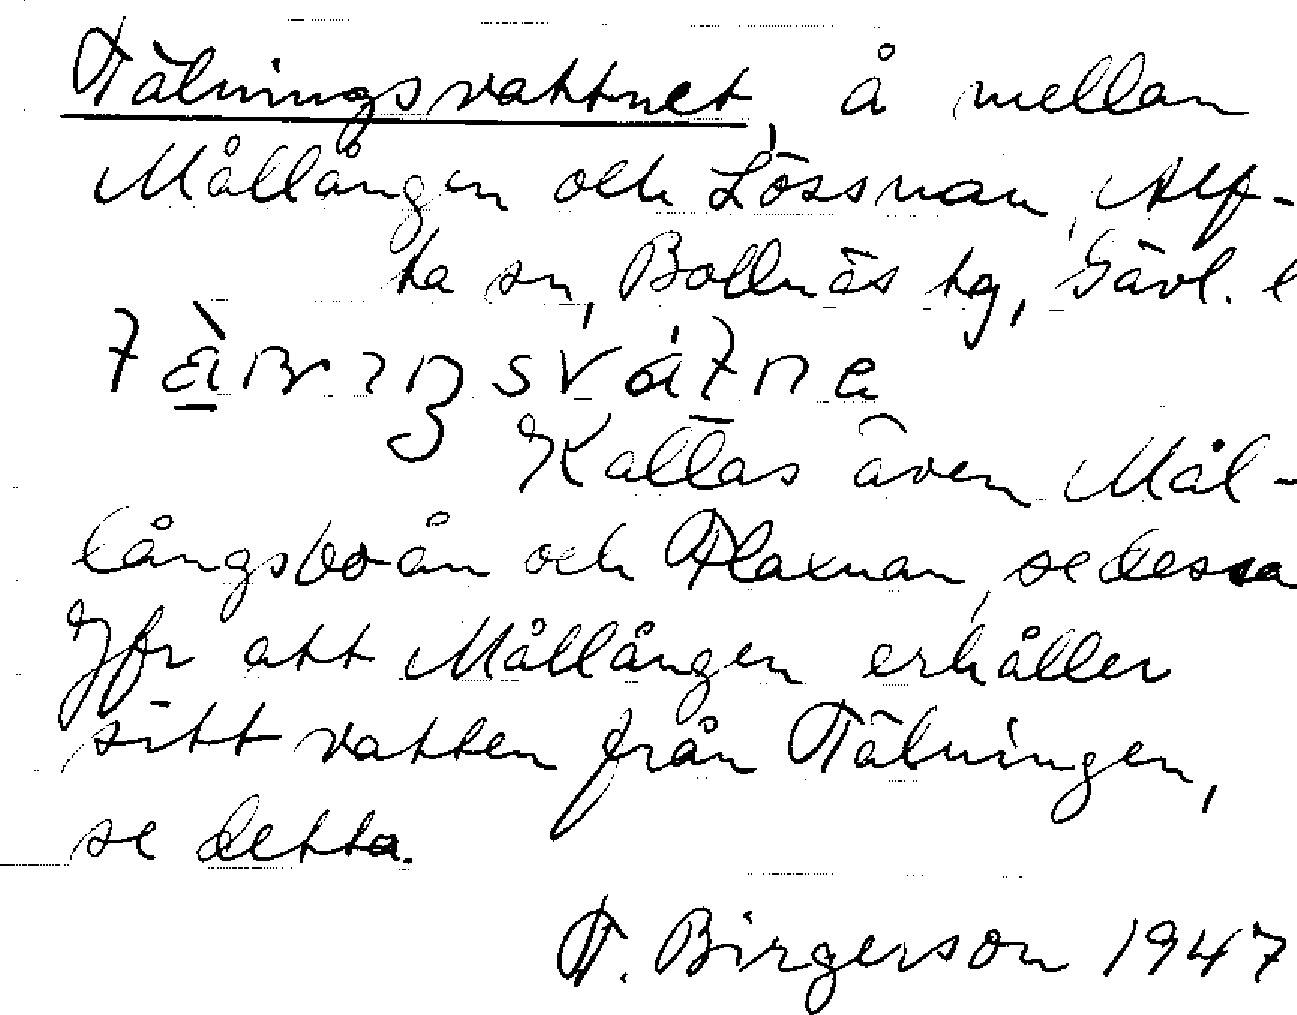 Tälningsvattnet, å mellan
Mållången och Lössnan, Alf-
ta sn, Bollnäs tg, Gävl. l
Kallas även Mål-
långsboån och Flaxnan, se dessa
Jfr att Mållången erhåller
sitt vatten från Tälningen,
se detta.
F. Birgerson 1947